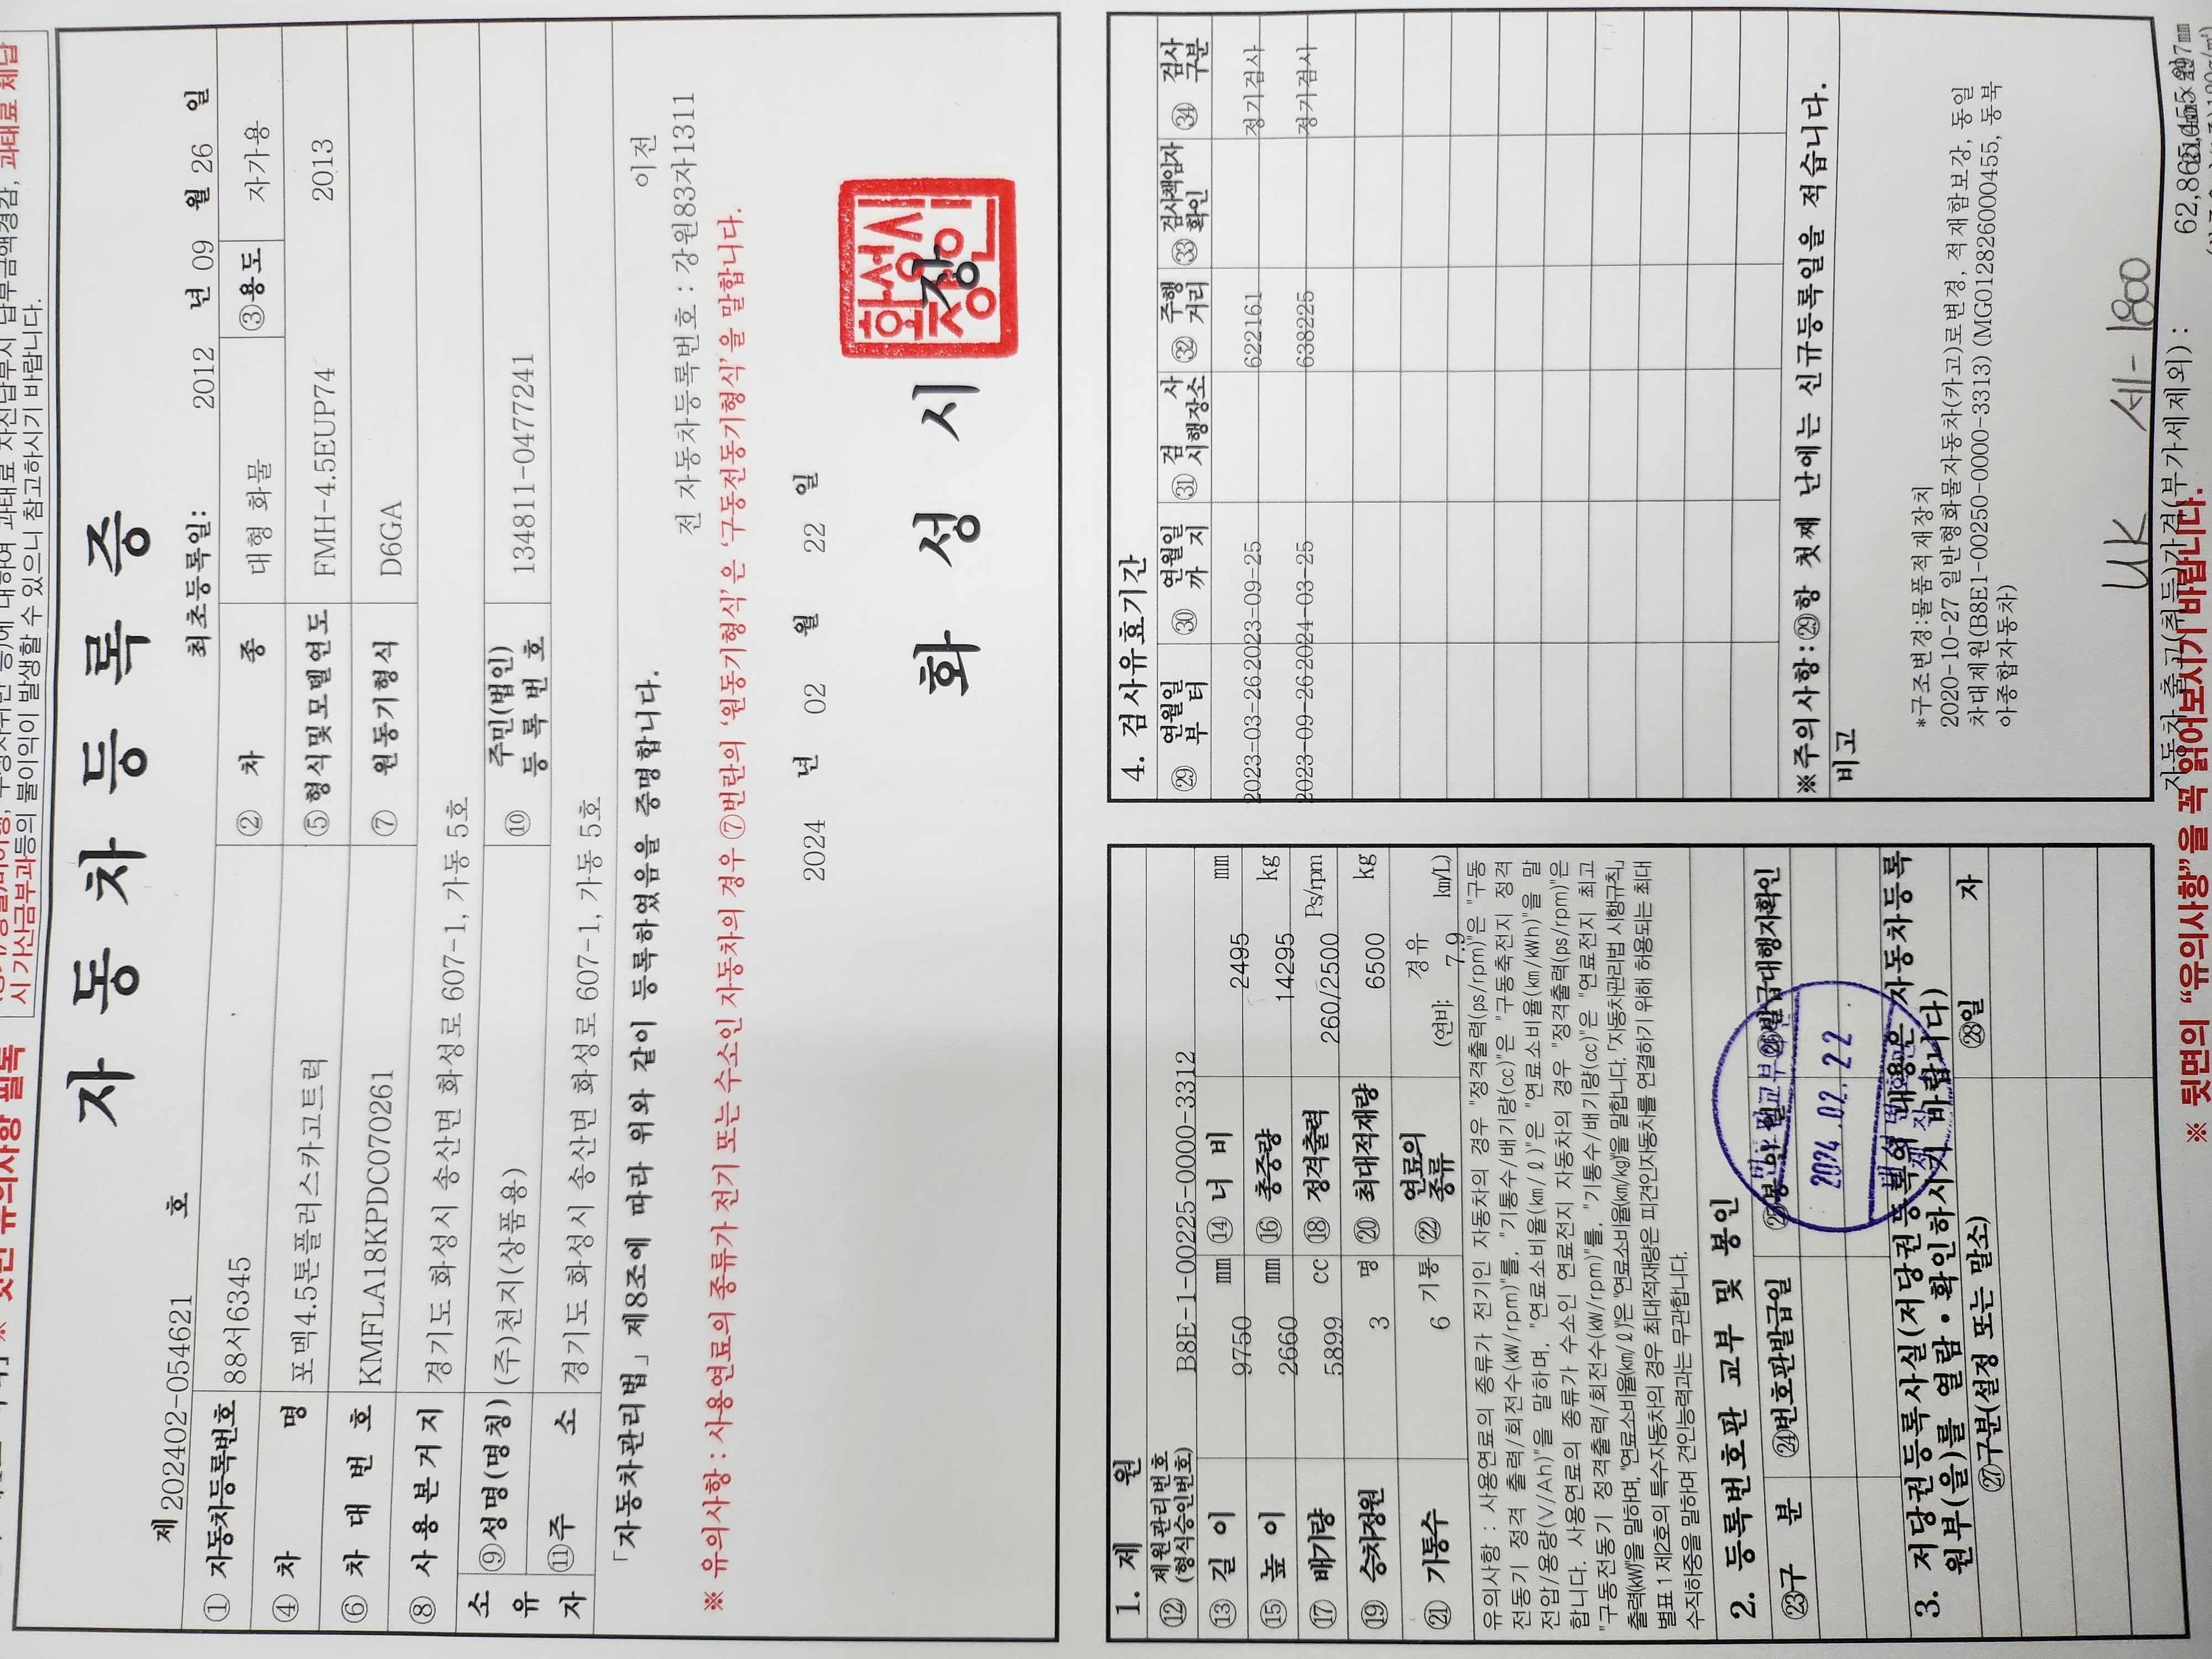 시 가산금부과등의 불이익이 발생할 수 있으니 참고하시기 바랍니다.
자 동 차 등 록 증
제 202402-054621 호
최초등록일: 2012 년 09 월 26 일
① 자동차등록번호 88서6345 ② 차 종 대형 화물 ③용도 자가용
④ 차 명 포멕4.5톤플러스카고트럭 ⑤형식및모델연도 FMH-4.5EUP74 2013
⑥ 차 대 번 호 KMFLA18KPDC070261 ⑦ 원동기형식 D6GA
⑧ 사 용 본 거 지 경기도 화성시 송산면 화성로 607-1, 가동 5호
소유자 ⑨성명(명칭) (주)천지(상품용) ⑩ 주민(법인)등록번호 134811-0477241
⑪주 소 경기도 화성시 송산면 화성로 607-1, 가동 5호
「자동차관리법」 제8조에 따라 위와 같이 등록하였음을 증명합니다.
이전
전 자동차등록번호 : 강원83자1311
※ 유의사항 : 사용연료의 종류가 전기 또는 수소인 자동차의 경우 ⑦번란의 '원동기형식'은 '구동전동기형식'을 말합니다.
2024 년 02 월 22 일
화 성 시 장
화성시
장인
1. 제 원
⑫ 제원관리번호 (형식승인번호) B8E-1-00225-0000-3312
⑬ 길 이 9750 mm ⑭ 너 비 2495 mm
⑮ 높 이 2660 mm ⑯ 총중량 14295 kg
⑰ 배기량 5899 cc ⑱ 정격출력 260/2500 Ps/rpm
⑲ 승차정원 3 명 ⑳ 최대적재량 6500 kg
㉑ 기통수 6 기통 ㉒ 연료의 종류 경유 (연비: 7.9 km/L)
유의사항 : 사용연료의 종류가 전기인 자동차의 경우 "정격출력(ps/rpm)"은 "구동
전동기 정격 출력/회전수(kW/rpm)"를, "기통수/배기량(cc)"은 "구동축전지 정격
전압/용량(V/Ah)"을 말하며, "연료소비율(km/ℓ)"은 "연료소비율(km/kWh)"을 말
합니다. 사용연료의 종류가 수소인 연료전지 자동차의 경우 "정격출력(ps/rpm)"은
"구동전동기 정격출력/회전수(kW/rpm)"를, "기통수/배기량(cc)"은 "연료전지 최고
출력(kW)"을 말하며, "연료소비율(km/ℓ)"은 "연료소비율(km/kg)"을 말합니다. 「자동차관리법 시행규칙」
별표 1 제2호의 특수자동차의 경우 최대적재량은 피견인자동차를 연결하기 위해 허용되는 최대
수직하중을 말하며 견인능력과는 무관합니다.
2. 등록번호판 교부 및 봉인
㉓구 분 ㉔번호판발급일 ㉕봉인일 ㉖발급대행자확인
2024.02.22
3. 저당권등록사실(저당권등록의 내용은 자동차등록
원부(을)를 열람·확인하시기 바랍니다)
㉗구분(설정 또는 말소) ㉘일 자
4. 검사유효기간
㉙ 연월일부터 ㉚ 연월일까지 ㉛ 검사시행장소 ㉜ 주행거리 ㉝ 검사책임자확인 ㉞ 검사구분
2023-03-26 2023-09-25 622161 정기검사
2023-09-26 2024-03-25 638225 정기검사
※주의사항:㉙항 첫째 난에는 신규등록일을 적습니다.
비고
*구조변경:물품적재장치
2020-10-27 일반형화물자동차(카고)로변경, 적재함보강, 동일
차대제원(B8E1-00250-0000-3313) (MG0128260000455, 동북
아종합자동차)
UK 세-1800
자동차 출고(취득)가격(부가세제외) :
※ 뒷면의 “유의사항”을 꼭 읽어보시기 바랍니다.